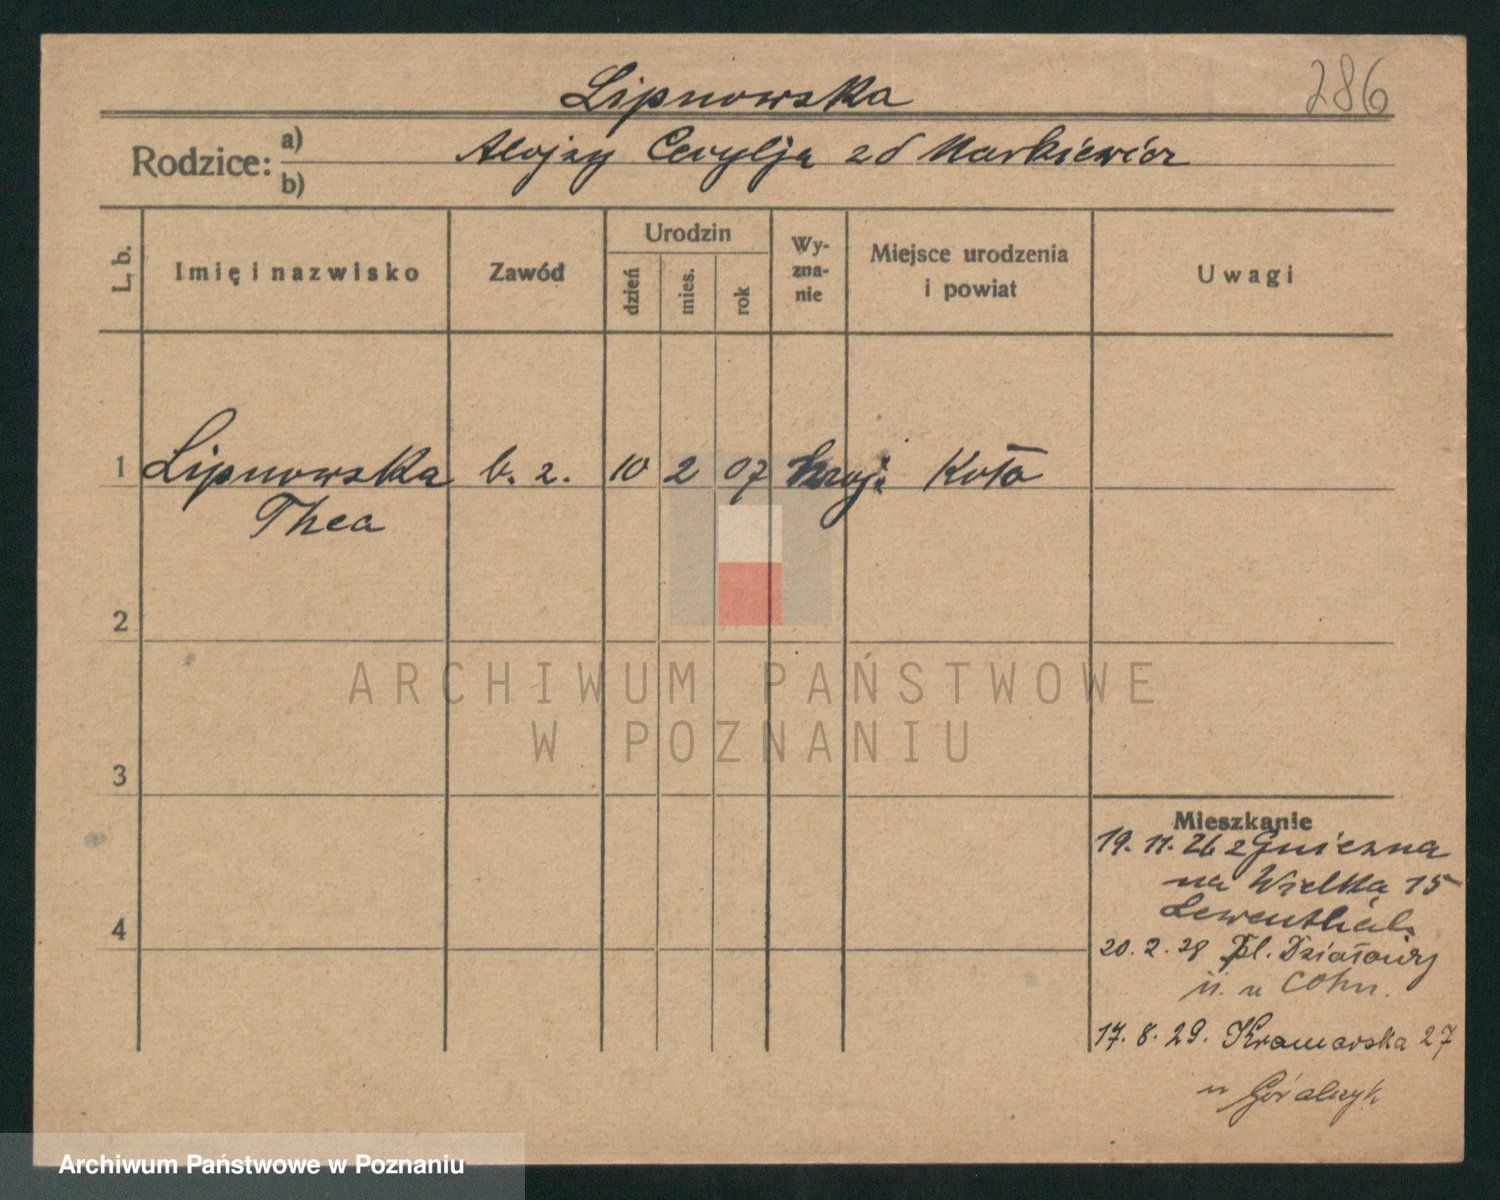 286
Lipnowska
Rodzice: a) b)
Alojzy Cecylja zd Markiewicz
L. b.
Imię i nazwisko
Zawód
Urodzin
dzień
mies.
rok
Wy-
zna-
nie
Miejsce urodzenia
i powiat
Uwagi
1 Lipnowska b. z. 10 2 07 Koło
Thea
2
3
4
Mieszkanie
19. 11. 26 z Gniezna
na Wielka 15
Lewenthal.
20. 2. 28 Pl. Działowy
11. u Cohn.
17. 8. 29. Kramarska 27
u Góralczyk
ARCHIWUM PAŃSTWOWE
W POZNANIU
Archiwum Państwowe w Poznaniu